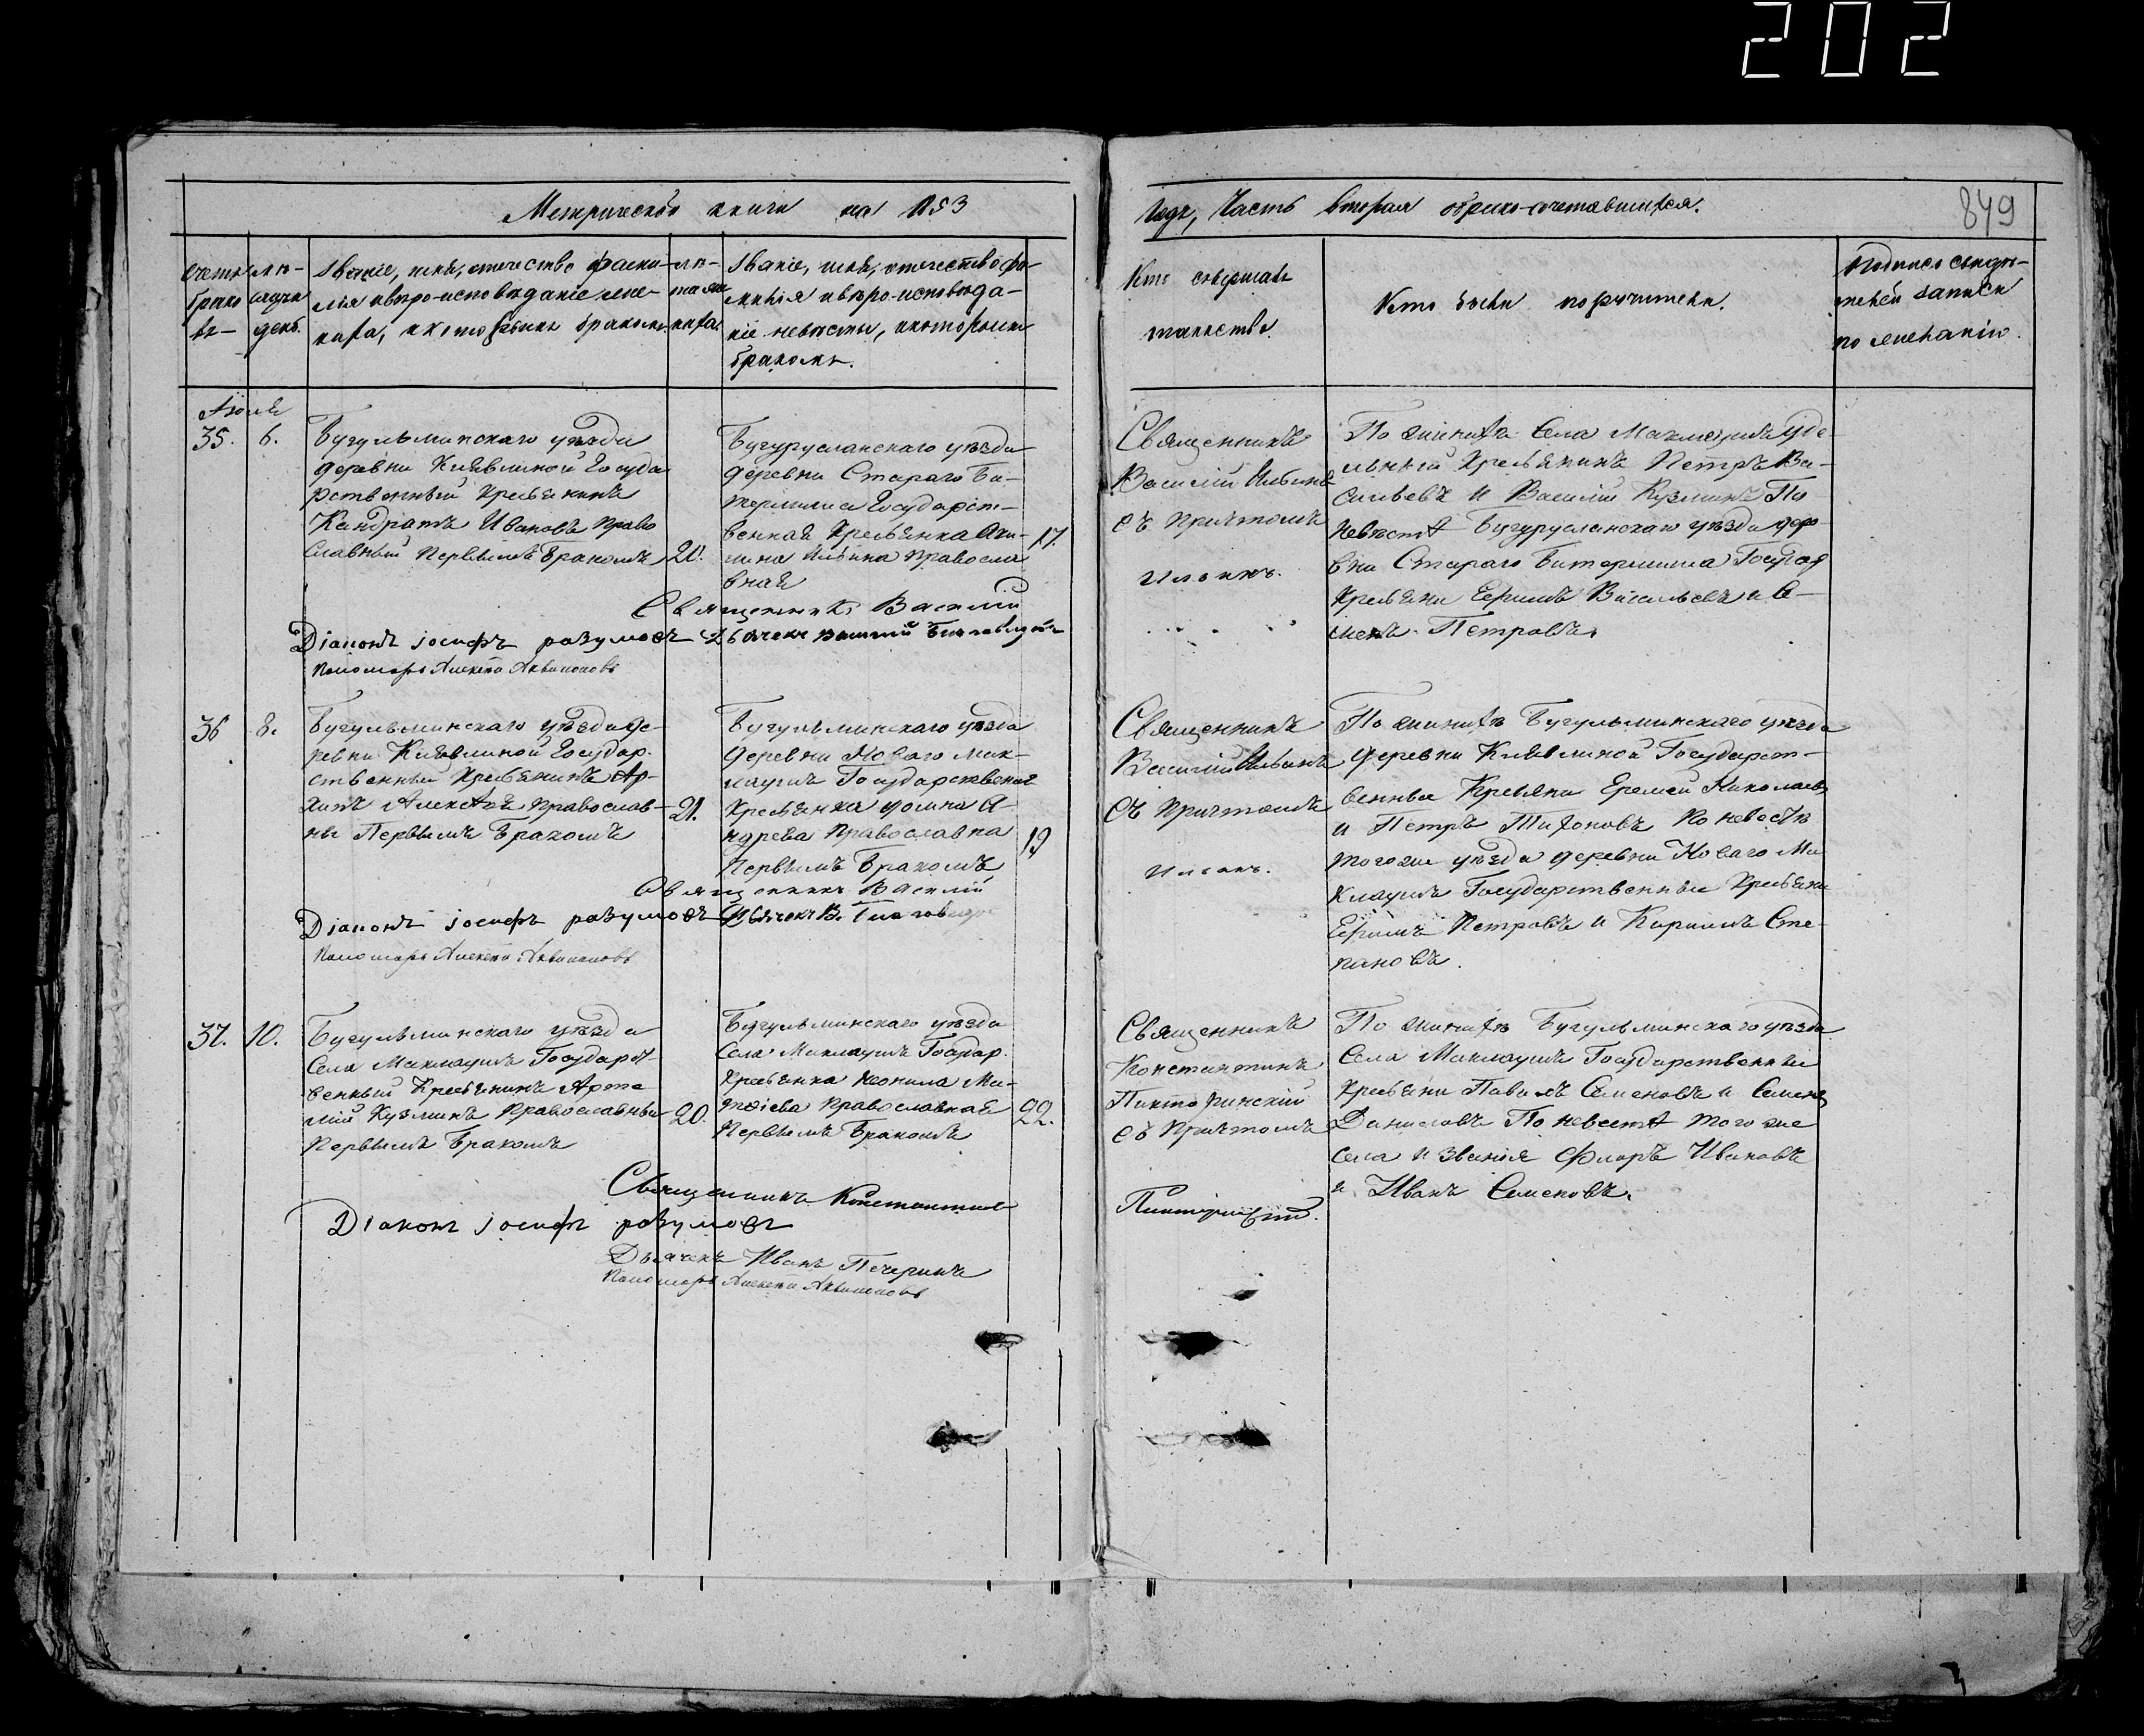 202
Метрической книги на 1853
Годъ, Часть вторая о брако-сочетавшихся.
849
счетъ браковъ
мѣ- сяцъ и день.
званіе, имя, отчество фами-
лія и вѣро-исповѣданіе же-
ниха, и которымъ бракомъ.
лѣ- та же- ниха
званіе, имя, отчество фа-
милія и вѣро-исповѣда-
ніе невѣсты, и которымъ
бракомъ.
Кто совершалъ
таинство.
Кто были поручители.
Подпись свидѣ-
телей записи
по желанію.
35.
6.
Бугульминскаго уѣзда
деревни Клявлиной Госуда
рственный Крестьянинъ
Кандратъ Ивановъ право
славный Первымъ Бракомъ
20.
Бугурусланскаго уѣзда
деревни Стараго Би-
термиша Государст-
венная Крестьянка
Ильина Православ
ная
17.
Священникъ
Василій Ильинъ
съ Причтомъ
По женихѣ Села Маклаушъ Уде-
льный Крестьянинъ Петръ Ва-
сильевъ и Василій Кузминъ По
невѣстѣ Бугурусланскаго уѣзда дере
вни Стараго Битермиша Госуд
Крестьяни Ефимъ Васильевъ и Се-
менъ Петровъ.
Священникъ Василій
Ильинъ.
Діаконъ Іосифъ Разумовъ
Дьячекъ Василій Благовидовъ
Пономарь Алексѣй Аквилоновъ
36
8.
Бугульминскаго уѣзда де-
ревни Клявлиной Государ.
ственный Крестьянинъ Ар-
хипъ Алексѣевъ Православ-
ны Первымъ Бракомъ
21.
Бугульминскаго уѣзда
деревни Новаго Мак-
лаушъ Государственная
Крестьянка Домна А-
ндрева Православна
Первымъ Бракомъ
19
Священникъ
Василій Ильинъ
съ Причтомъ
По женихѣ Бугульминскаго уѣзда
деревни Клявлиной Государст-
венны Крестьяни Еремей Николаевъ
и Петръ Тихоновъ По невѣстѣ
того же уѣзда деревни Новаго Ма
клаушъ Государственны Крестьяни
Ефимъ Петровъ и Кирилъ Сте-
пановъ.
Священникъ Василій
Ильинъ.
Діаконъ Іосифъ Разумовъ
Дьячекъ В. Благовидовъ
Пономарь Алексѣй Аквилоновъ
37.
10.
Бугульминскаго уѣзда
Села Маклаушъ Государст-
венный Крестьянинъ Арте
мій Кузминъ Православны
Первымъ Бракомъ
20.
Бугульминскаго уѣзда
Села Маклаушъ Государ.
Крестьянка Неонила Ма-
тѳіева Православная
Первымъ Бракомъ
22.
Священникъ
Константинъ
съ Причтомъ
По женихѣ Бугульминскаго уѣзда
Села Маклаушъ Государственны
Крестьяни Павилъ Семеновъ и Семенъ
Даниловъ По невестѣ того же
села и званія Флоръ Ивановъ
и Иванъ Семеновъ.
Священникъ Константинъ
Діаконъ Іосифъ Разумовъ
Дьячекъ Иванъ Печеринъ
Пономарь Алексѣй Аквилоновъ